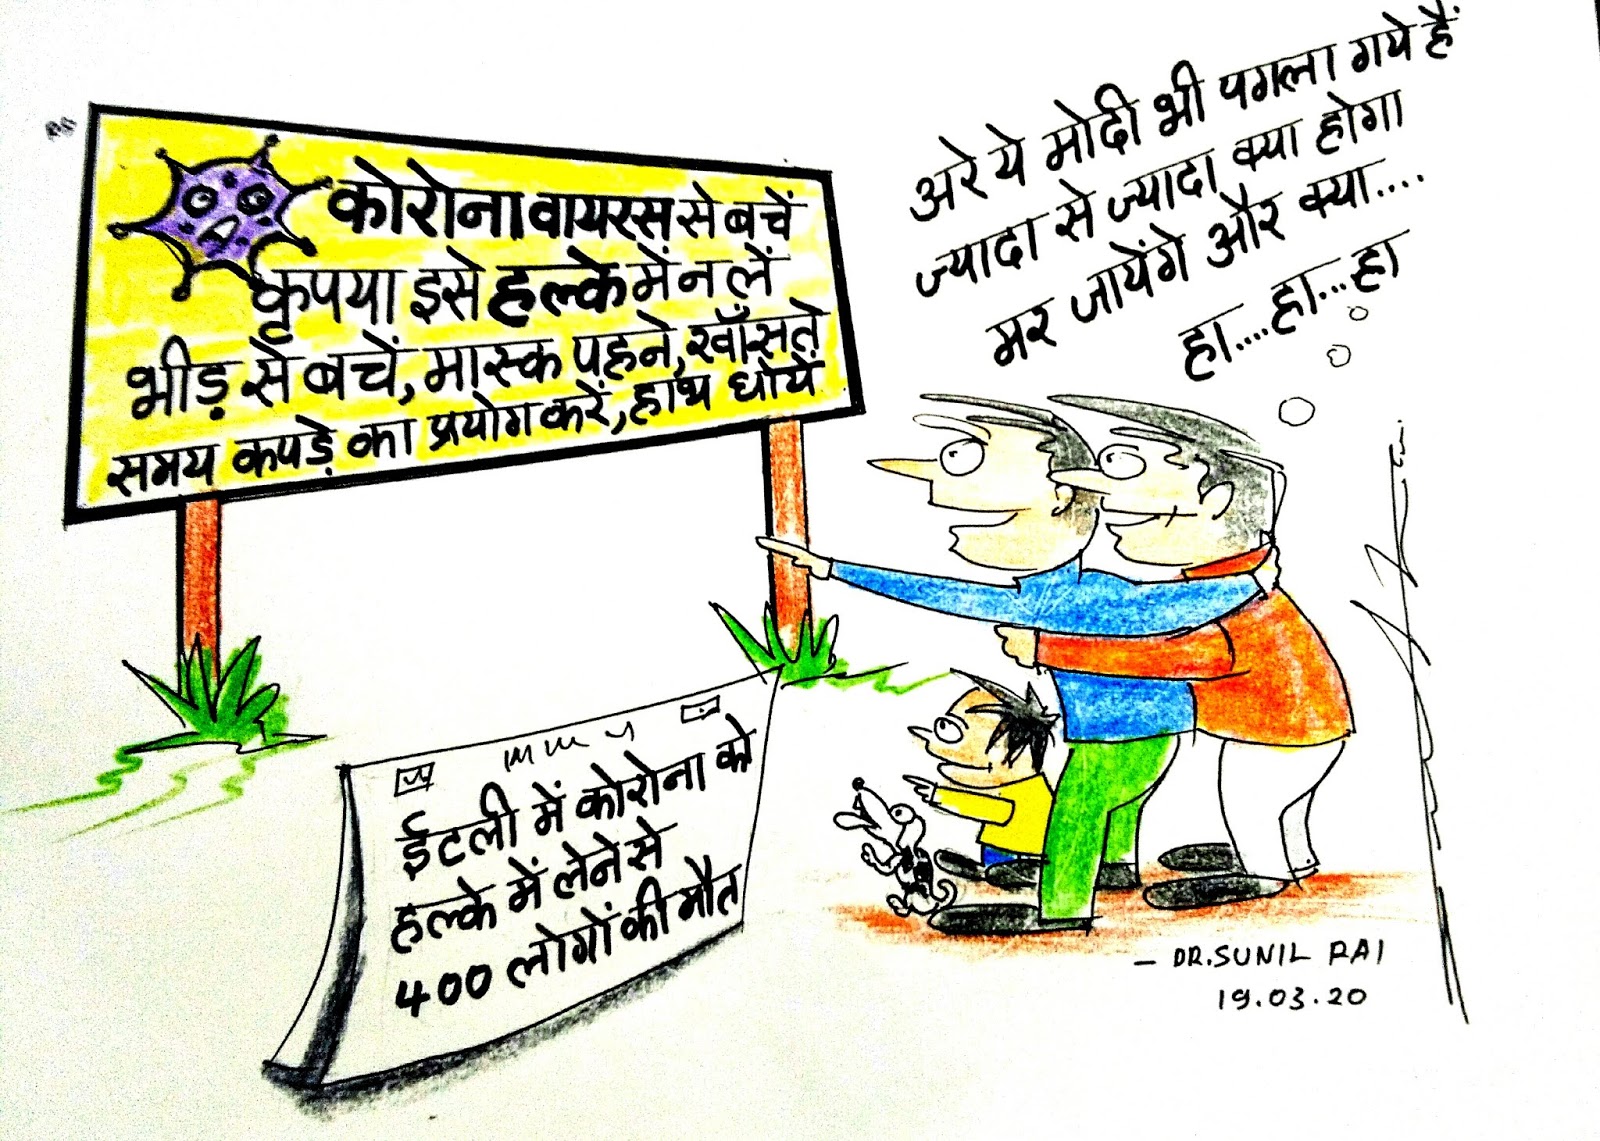 कोरोना वायरस से बचें
कृपया इसे हल्के में न लें
भीड़ से बचें, मास्क पहने, खाँसते
समय कपड़े का प्रयोग करें, हाथ धोयें
अरे ये मोदी भी पगला गये हैं
ज्यादा से ज्यादा क्या होगा
मर जायेंगे और क्या....
हा....हा...हा
ईटली में कोरोना को
हल्के में लेने से
400 लोगों की मौत
- DR. SUNIL RAI
19.03.20